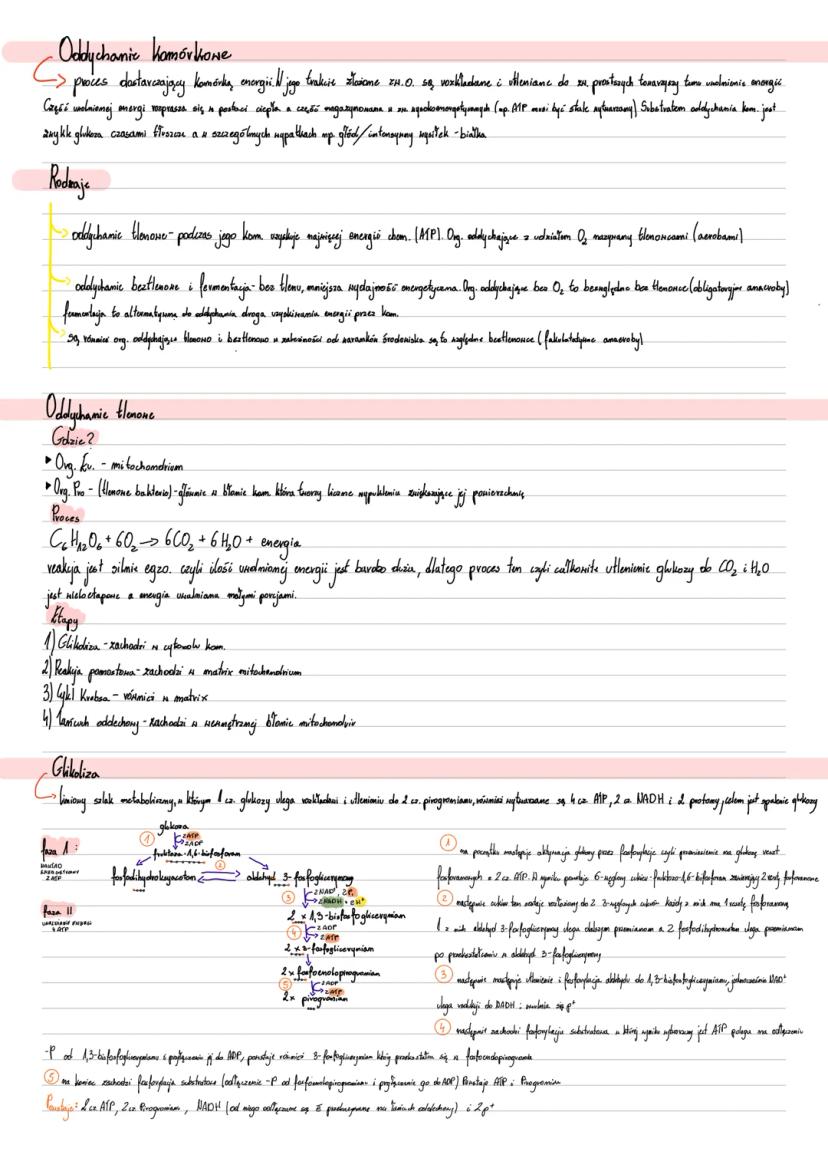 Oddychanie komórkowe
proces dostarczający komórką energii. W jego trakcie złożone zw. O. są rozkładane i utleniane do zw. prostszych towarzyszy temu uwolnienie energii
Część uwolnionej energi rozprasza się w postaci ciepła a część magazynowana w zw. wysokoenergetycznych (np. ATP musi być stale wytwarzany) Substratem oddychania kom. jest
zwykle glukoza czasami tłuszcze a w szczególnych wypatkach np. głód/intensywny wysiłek - białka
Rodzaje
oddychanie tlenowe - podczas jego kom. uzyskuje najwięcej energii chem. (ATP). Org. oddychające z udziałem O₂ nazywamy tlenowcami (aerobami)
oddychanie beztlenowe i fermentacja - bez tlenu, mniejsza wydajność energetyczna. Org. oddychające bez O₂ to bezwzględne bez tlenowce (obligatoryjne anaeroby)
fermentacja to alternatywna do oddychania droga uzyskiwania energii przez kom.
są również org. oddychające tlenowo i beztlenowo w zależności od warunków środowiska są to względne beztlenowce (fakultatywne anaeroby)
Oddychanie tlenowe
Gdzie?
Org. Eu. - mitochondrium
Org. Pro - (tlenowe bakterie) - głównie w błonie kom. która tworzy liczne wypuklenia zwiększające jej powierzchnię
Proces
C₆H₁₂O₆ + 6O₂ → 6CO₂ + 6H₂O + energia
reakcja jest silnie egzo. czyli ilość uwolnionej energii jest bardzo duża, dlatego proces ten czyli całkowite utlenienie glukozy do CO₂ i H₂O
jest wieloetapowe a energia uwalniana małymi porcjami.
Etapy
1) Glikoliza - zachodzi w cytozolu kom.
2) Reakcja pomostowa - zachodzi w matrix mitochondrium
3) Cykl Krebsa - również w matrix
4) Łańcuch oddechowy - zachodzi w wewnętrznej błonie mitochondriów
Glikoliza
liniowy szlak metaboliczny, w którym 1 cz. glukozy ulega rozkładowi i utlenieniu do 2 cz. pirogronianu, również wytwarzane są 4 cz. ATP, 2 cz. NADH i 2 protony, celem jest spalanie glukozy
faza I:
glukoza
① 2ATP
2ADP
fruktozo-1,6-bisfosforan
②
fosfodihydroksyaceton
aldehyd 3-fosfoglicerynowy
③ 2NAD⁺, 2Pᵢ
2NADH + 2H⁺
faza II
2 x 1,3-bisfosfoglicerynian
④ 2ADP
2ATP
2 x 3-fosfoglicerynian
2x fosfoenolopirogronian
⑤ 2ADP
2ATP
2x pirogronian
① na początku następuje aktywacja glukozy przez fosforylację czyli przeniesienie na glukozę reszt
fosforanowych z 2 cz. ATP. W wyniku powstaje 6-węglowy cukier - fruktozo-1,6-bisfosforan zawierający 2 reszty fosforanowe
② następnie cukier ten zostaje rozłożony do 2 3-węglowych cukrów każdy z nich ma 1 resztę fosforanową
1 z nich aldehyd 3-fosfoglicerynowy ulega dalszym przemianom a 2 fosfodihydroaceton ulega przemianom
po przekształceniu w aldehyd 3-fosfoglicerynowy
③ następnie następuje utlenienie i fosforylacja aldehydu do 1,3-bisfosfoglicerynianu, jednocześnie NAD⁺
ulega redukcji do NADH i uwalnia się p⁺
④ następnie zachodzi fosforylacja substratowa w której wyniku wytworzony jest ATP polega na odłączeniu
-P od 1,3-bisfosfoglicerynianu i przyłączeniu jej do ADP, powstaje również 3-fosfoglicerynian który przekształca się w fosfoenolopirogronian
⑤ na koniec zachodzi fosforylacja substratowa (odłączenie -P od fosfoenolopirogronianu i przyłączenie go do ADP) Powstaje ATP i Pirogronian
Powstaje: 2 cz. ATP, 2 cz. Pirogronian, NADH (od niego odłączane są E przekazywane na łańcuch oddechowy) i 2p⁺